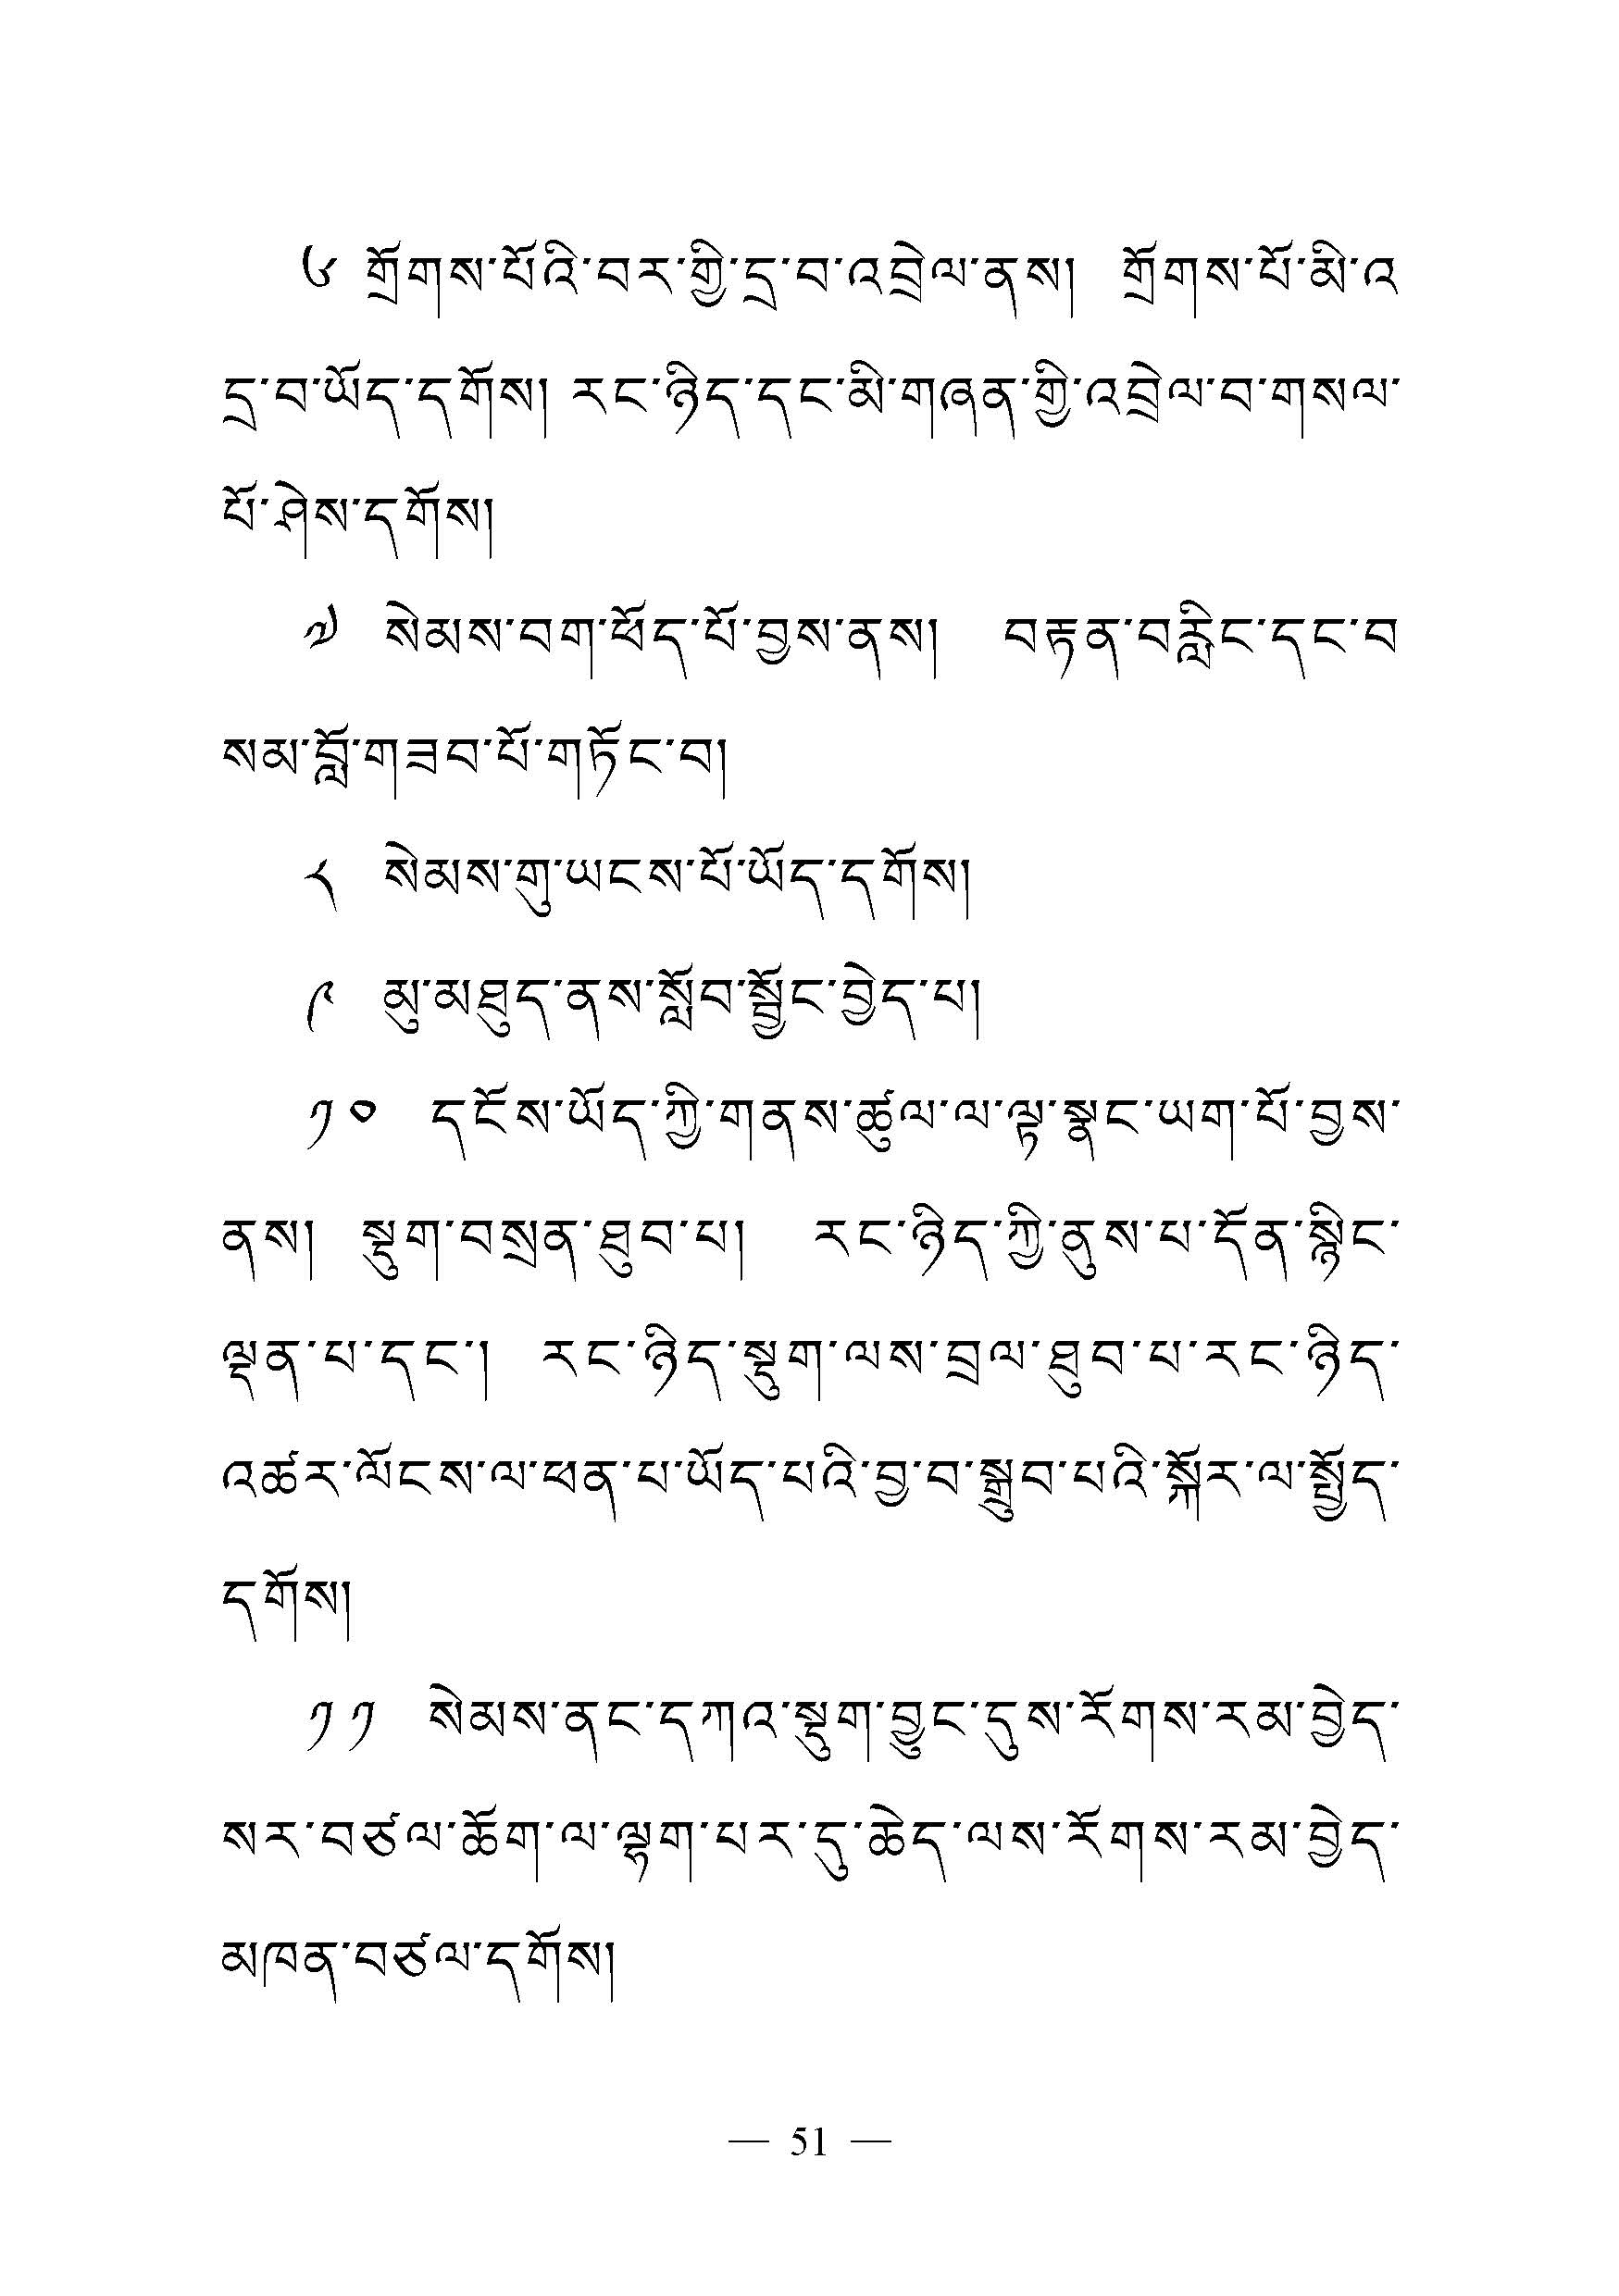 ༦ གྲོགས་པོའི་བར་གྱི་དྲ་བ་འབྲེལ་ནས། གྲོགས་པོ་མི་འ
དྲ་བ་ཡོད་དགོས། རང་ཉིད་དང་མི་གཞན་གྱི་འབྲེལ་བ་གསལ་
པོ་ཤེས་དགོས།
༧ སེམས་བག་ཕོད་པོ་བྱས་ནས། བརྟན་བརླིང་དང་བ
སམ་བློ་གཟབ་པོ་གཏོང་བ།
༨ སེམས་གུ་ཡངས་པོ་ཡོད་དགོས།
༩ མུ་མཐུད་ནས་སློབ་སྦྱོང་བྱེད་པ།
༡༠ དངོས་ཡོད་ཀྱི་གནས་ཚུལ་ལ་ལྟ་སྣང་ཡག་པོ་བྱས་
ནས། སྡུག་བསྲན་ཐུབ་པ། རང་ཉིད་ཀྱི་ནུས་པ་དོན་སྙིང་
ལྡན་པ་དང་། རང་ཉིད་སྡུག་ལས་བྲལ་ཐུབ་པ་རང་ཉིད་
འཚར་ལོངས་ལ་ཕན་པ་ཡོད་པའི་བྱ་བ་སྒྲུབ་པའི་སྐོར་ལ་སྤྱོད་
དགོས།
༡༡ སེམས་ནང་དཀའ་སྡུག་བྱུང་དུས་རོགས་རམ་བྱེད་
སར་བཙལ་ཆོག་ལ་ལྷག་པར་དུ་ཆེད་ལས་རོགས་རམ་བྱེད་
མཁན་བཙལ་དགོས།
— 51 —